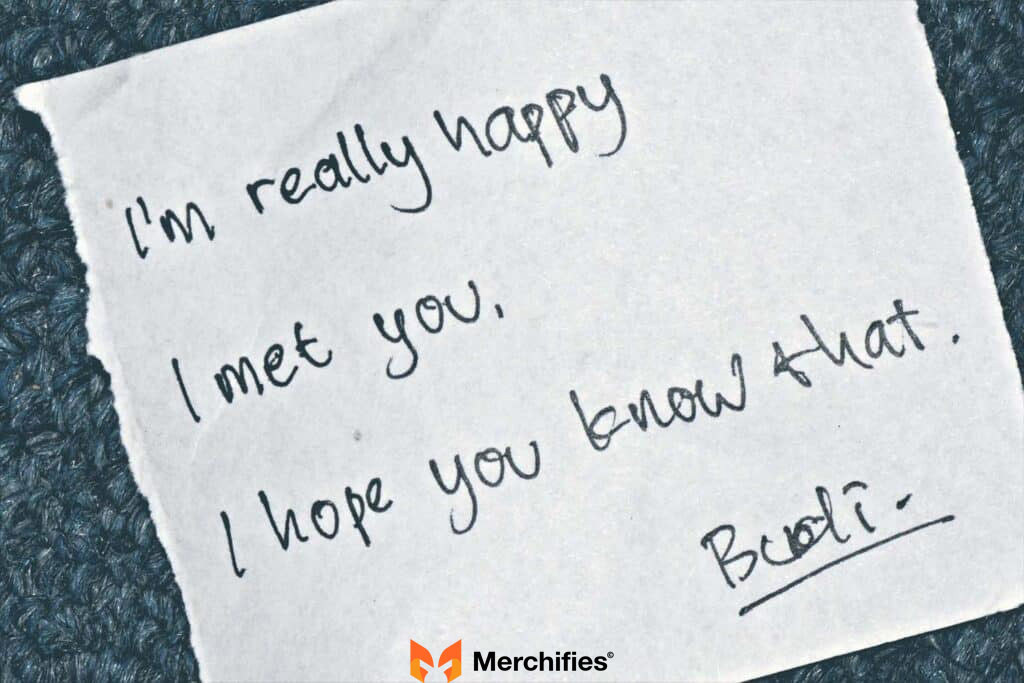 I'm really happy
I met you.
I hope you know that.
Budi.
Merchifies©